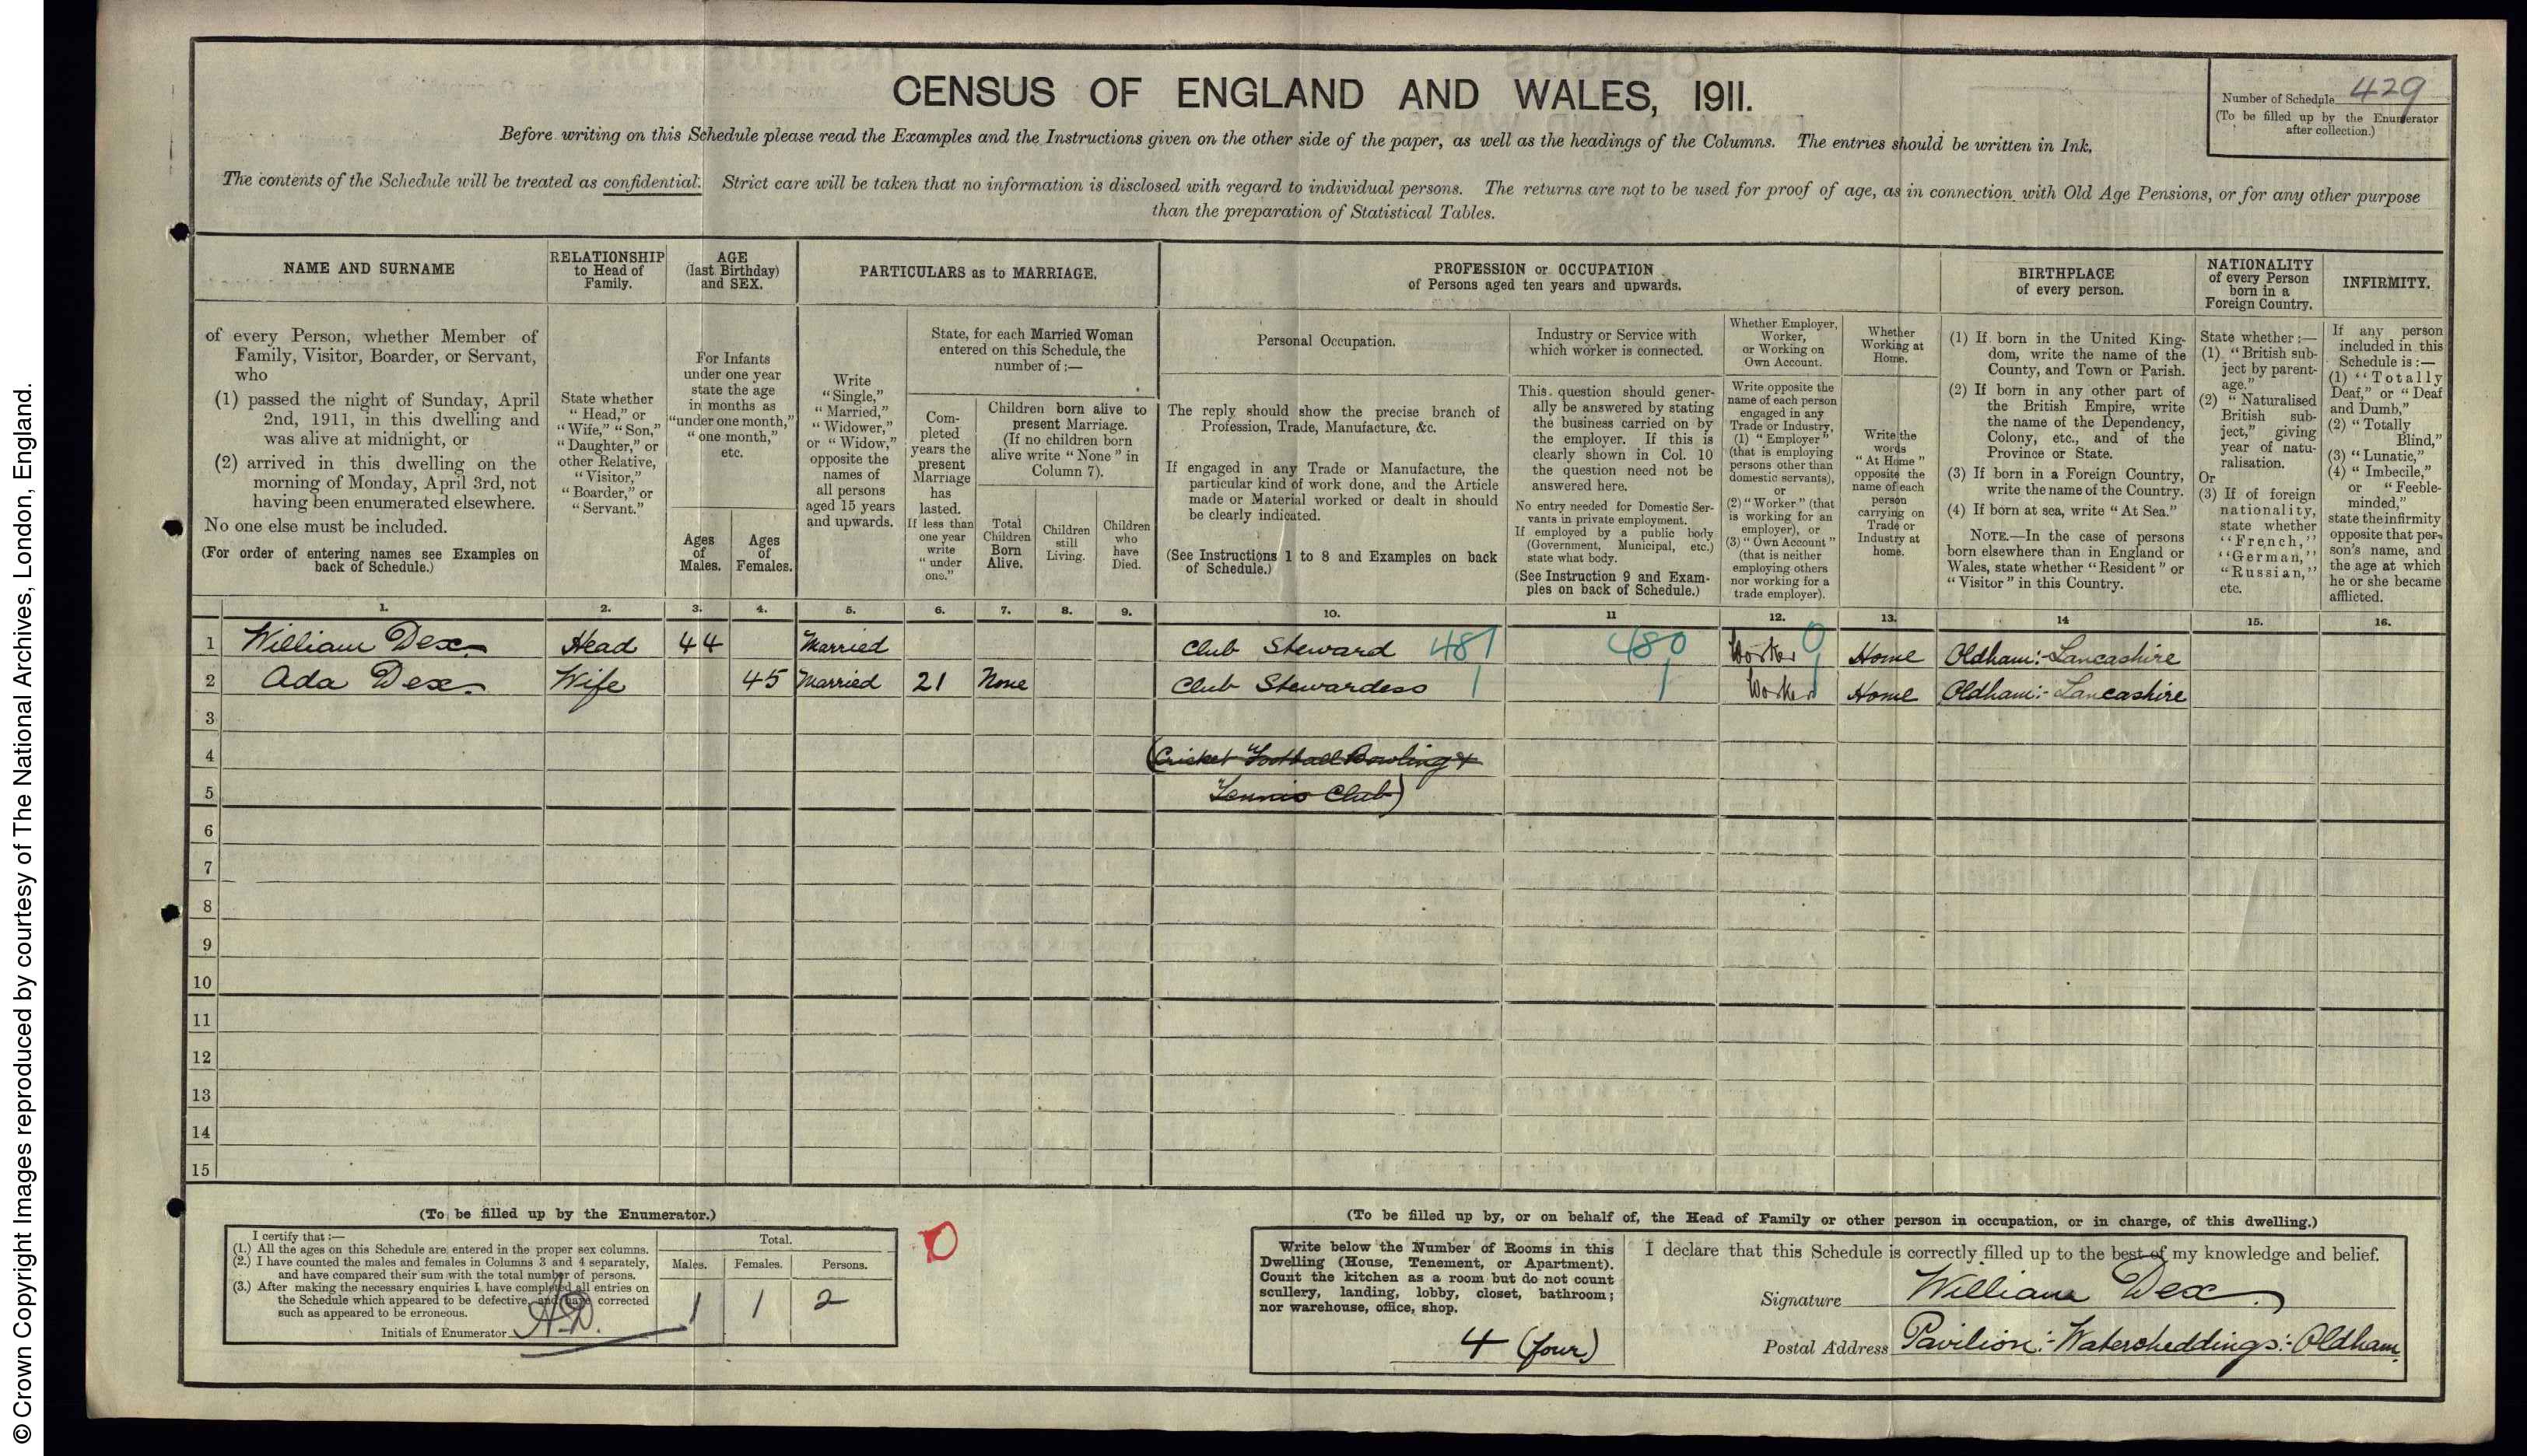 © Crown Copyright Images reproduced by courtesy of The National Archives, London, England.
CENSUS OF ENGLAND AND WALES, 1911.
Number of Schedule 429
(To be filled up by the Enumerator
after collection.)
Before writing on this Schedule please read the Examples and the Instructions given on the other side of the paper, as well as the headings of the Columns. The entries should be written in Ink.
The contents of the Schedule will be treated as confidential. Strict care will be taken that no information is disclosed with regard to individual persons. The returns are not to be used for proof of age, as in connection with Old Age Pensions, or for any other purpose
than the preparation of Statistical Tables.
NAME AND SURNAME
of every Person, whether Member of
Family, Visitor, Boarder, or Servant,
who
(1) passed the night of Sunday, April
2nd, 1911, in this dwelling and
was alive at midnight, or
(2) arrived in this dwelling on the
morning of Monday, April 3rd, not
having been enumerated elsewhere.
No one else must be included.
(For order of entering names see Examples on
back of Schedule.)
RELATIONSHIP
to Head of
Family.
State whether
"Head," or
"Wife," "Son,"
"Daughter," or
other Relative,
"Visitor,"
"Boarder," or
"Servant."
AGE
(last Birthday)
and SEX.
For Infants
under one year
state the age
in months as
"under one month,"
"one month,"
etc.
Ages
of
Males.
Ages
of
Females.
PARTICULARS as to MARRIAGE.
Write
"Single,"
"Married,"
"Widower,"
or "Widow,"
opposite the
names of
all persons
aged 15 years
and upwards.
State, for each Married Woman
entered on this Schedule, the
number of :—
Com-
pleted
years the
present
Marriage
has
lasted.
If less than
one year
write
"under
one."
Children born alive to
present Marriage.
(If no children born
alive write "None" in
Column 7).
Total
Children
Born
Alive.
Children
still
Living.
Children
who
have
Died.
PROFESSION or OCCUPATION
of Persons aged ten years and upwards.
Personal Occupation.
The reply should show the precise branch of
Profession, Trade, Manufacture, &c.
If engaged in any Trade or Manufacture, the
particular kind of work done, and the Article
made or Material worked or dealt in should
be clearly indicated.
(See Instructions 1 to 8 and Examples on back
of Schedule.)
Industry or Service with
which worker is connected.
This question should gener-
ally be answered by stating
the business carried on by
the employer. If this is
clearly shown in Col. 10
the question need not be
answered here.
No entry needed for Domestic Ser-
vants in private employment.
If employed by a public body
(Government, Municipal, etc.)
state what body.
(See Instruction 9 and Exam-
ples on back of Schedule.)
Whether Employer,
Worker,
or Working on
Own Account.
Write opposite the
name of each person
engaged in any
Trade or Industry,
(1) "Employer"
(that is employing
persons other than
domestic servants),
or
(2) "Worker" (that
is working for an
employer), or
(3) "Own Account"
(that is neither
employing others
nor working for a
trade employer).
Whether
Working at
Home.
Write the
words
"At Home"
opposite the
name of each
person
carrying on
Trade or
Industry at
home.
BIRTHPLACE
of every person.
(1) If born in the United King-
dom, write the name of the
County, and Town or Parish.
(2) If born in any other part of
the British Empire, write
the name of the Dependency,
Colony, etc., and of the
Province or State.
(3) If born in a Foreign Country,
write the name of the Country.
(4) If born at sea, write "At Sea."
NOTE.—In the case of persons
born elsewhere than in England or
Wales, state whether "Resident" or
"Visitor" in this Country.
NATIONALITY
of every Person
born in a
Foreign Country.
State whether :—
(1) "British sub-
ject by parent-
age."
(2) "Naturalised
British sub-
ject," giving
year of natu-
ralisation.
Or
(3) If of foreign
nationality,
state whether
"French,"
"German,"
"Russian,"
etc.
INFIRMITY.
If any person
included in this
Schedule is :—
(1) "Totally
Deaf," or "Deaf
and Dumb,"
(2) "Totally
Blind,"
(3) "Lunatic,"
(4) "Imbecile,"
or "Feeble-
minded,"
state the infirmity
opposite that per-
son's name, and
the age at which
he or she became
afflicted.
1. 2. 3. 4. 5. 6. 7. 8. 9. 10. 11 12. 13. 14 15. 16.
1 William Dex Head 44 Married Club Steward 481 480 Worker 0 Home Oldham:-Lancashire
2 Ada Dex Wife 45 Married 21 None Club Stewardess 1 1 Worker 1 Home Oldham:-Lancashire
3
4 (Cricket Football Bowling &
5 Tennis Club)
6
7
8
9
10
11
12
13
14
15
(To be filled up by the Enumerator.)
I certify that :—
(1.) All the ages on this Schedule are entered in the proper sex columns.
(2.) I have counted the males and females in Columns 3 and 4 separately,
and have compared their sum with the total number of persons.
(3.) After making the necessary enquiries I have completed all entries on
the Schedule which appeared to be defective, and have corrected
such as appeared to be erroneous.
Initials of Enumerator A.D.
Total.
Males. Females. Persons.
1 1 2
(To be filled up by, or on behalf of, the Head of Family or other person in occupation, or in charge, of this dwelling.)
Write below the Number of Rooms in this
Dwelling (House, Tenement, or Apartment).
Count the kitchen as a room but do not count
scullery, landing, lobby, closet, bathroom;
nor warehouse, office, shop.
4 (four)
I declare that this Schedule is correctly filled up to the best of my knowledge and belief.
Signature William Dex.
Postal Address Pavilion:-Watersheddings:-Oldham.